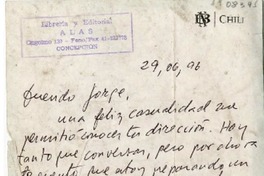 Librería y Editorial
ALAS
CONCEPCION
CHILE
29,06,96
Querido Jorge,
una feliz casualidad me
permitió conocer tu dirección. Hay
tanto que conversar, pero por ahora
que estoy preparando un